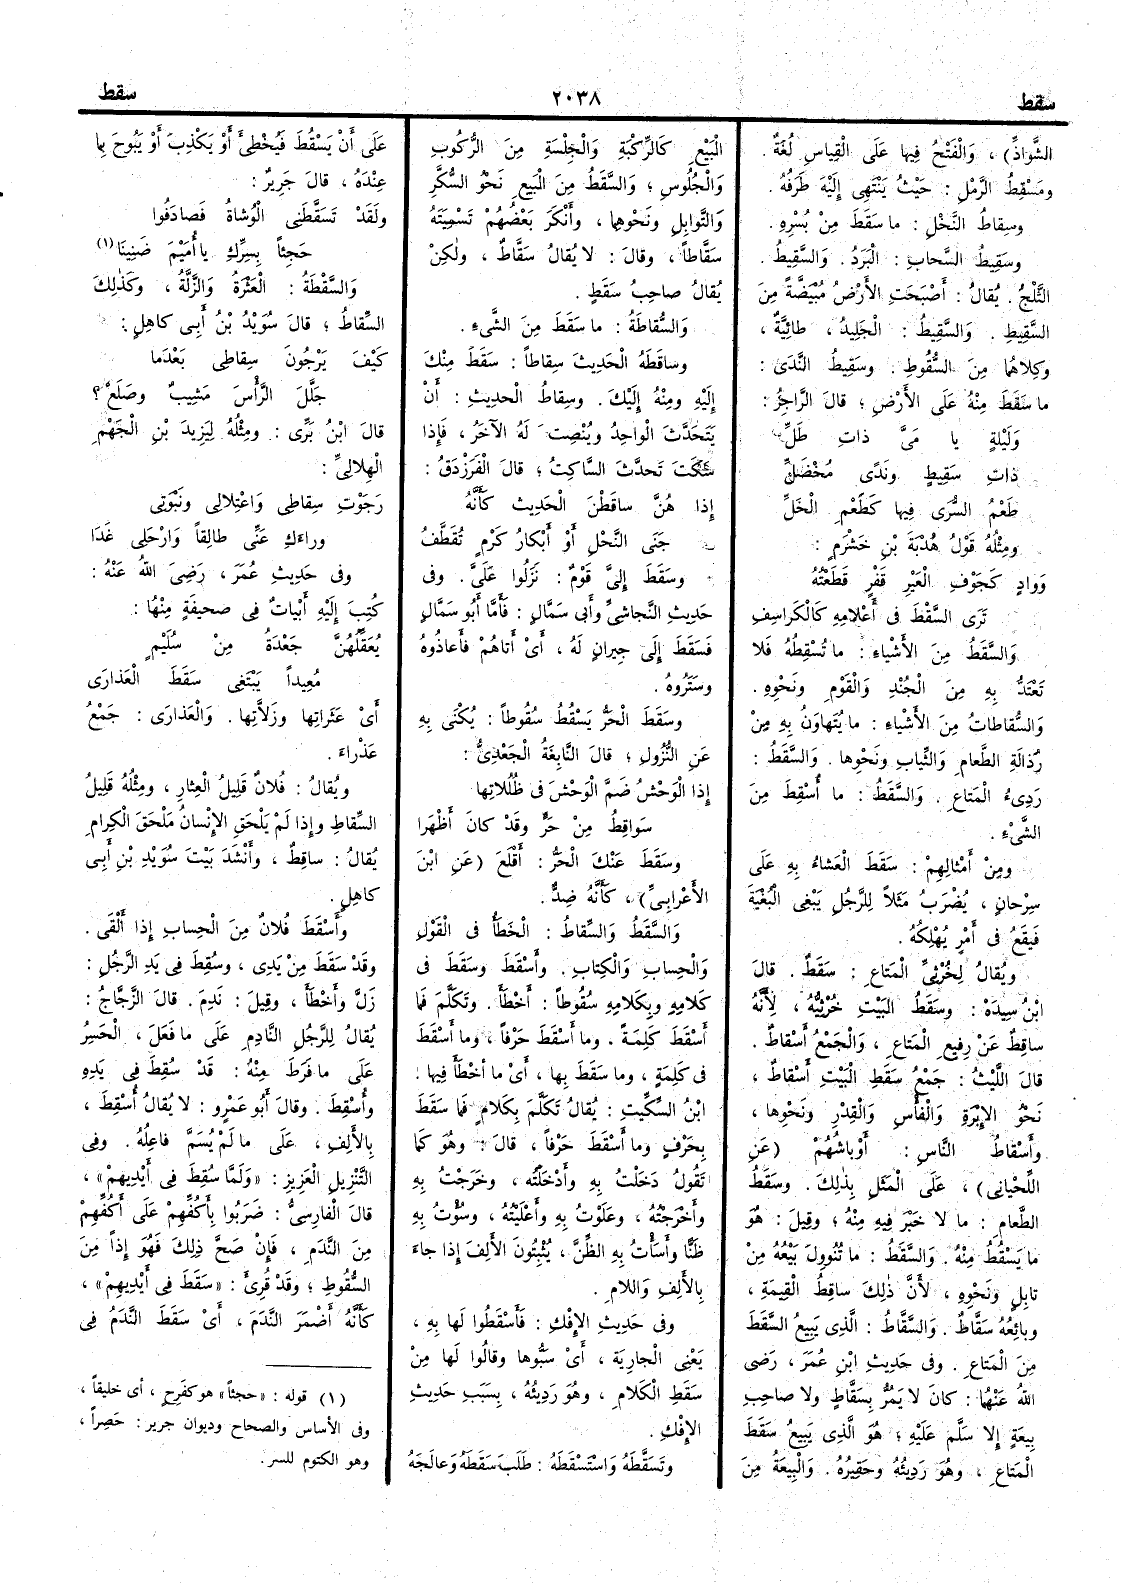 سقط
٢٠٣٨
سقط
الشَّواذِّ) ، وَالْفَتْحُ فِيها عَلَى الْقِياسِ لُغَةٌ .
ومَسْقِطُ الرَّمْلِ : حَيْثُ يَنْتَهِى إِلَيْهِ طَرَفُهُ .
وسِقاطُ النَّخْلِ : ما سَقَطَ مِنْ بُسْرِهِ .
وسَقِيطُ السَّحابِ : الْبَرَدُ . وَالسَّقِيطُ :
الثَّلْجُ . يُقالُ : أَصْبَحَتِ الأَرْضُ مُبْيَضَّةً مِنَ
السَّقِيطِ . وَالسَّقِيطُ : الْجَلِيدُ ، طائِيَّةٌ ،
وكِلاهُما مِنَ السُّقُوطِ . وسَقِيطُ النَّدَى :
ما سَقَطَ مِنْهُ عَلَى الأَرْضِ ؛ قالَ الرَّاجِزُ :
وَلَيْلَةٍ يا مَىَّ ذاتِ طَلِّ
ذاتِ سَقِيطٍ ونَدًى مُخْضَلِّ
طَعْمُ السُّرَى فِيها كَطَعْمِ الْخَلِّ
ومِثْلُهُ قَوْلُ هُدْبَةَ بْنِ خَشْرَمٍ :
وَوادٍ كَجَوْفِ الْعَيْرِ قَفْرٍ قَطَعْتُهُ
تَرَى السَّقْطَ فى أَعْلامِهِ كَالْكَراسِفِ
وَالسَّقَطُ مِنَ الأَشْياءِ : ما تُسْقِطُهُ فَلا
تَعْتَدُّ بِهِ مِنَ الْجُنْدِ وَالْقَوْمِ ونَحْوِهِ .
وَالسُّقاطاتُ مِنَ الأَشْياءِ : ما يُتَهاوَنُ بِهِ مِنْ
رُذالَةِ الطَّعامِ وَالثِّيابِ ونَحْوِها . وَالسَّقَطُ :
رَدِىءُ الْمَتاعِ . وَالسَّقَطُ : ما أُسْقِطَ مِنَ
الشَّىْءِ .
ومِنْ أَمْثالِهِمْ : سَقَطَ الْعَشاءُ بِهِ عَلَى
سِرْحانٍ ، يُضْرَبُ مَثَلاً لِلرَّجُلِ يَبْغِى الْبُغْيَةَ
فَيَقَعُ فى أَمْرٍ يُهْلِكُهُ .
ويُقالُ لِخُرْثِىِّ الْمَتاعِ : سَقَطٌ . قالَ
ابْنُ سِيدَهْ : وسَقَطُ الْبَيْتِ خُرْثِيُّهُ ، لِأَنَّهُ
ساقِطٌ عَنْ رَفِيعِ الْمَتاعِ ، وَالْجَمْعُ أَسْقاطٌ .
قالَ اللَّيْثُ : جَمْعُ سَقَطِ الْبَيْتِ أَسْقاطٌ ،
نَحْوُ الإِبْرَةِ وَالْفَأْسِ وَالْقِدْرِ ونَحْوِها ،
وأَسْقاطُ النَّاسِ : أَوْباشُهُمْ (عَنِ
اللِّحْيانِى) ، عَلَى الْمَثَلِ بِذٰلِكَ . وسَقَطُ
الطَّعامِ : ما لا خَيْرَ فِيهِ مِنْهُ ؛ وقِيلَ : هُوَ
ما يَسْقُطُ مِنْهُ . وَالسَّقَطُ : ما تُنُووِلَ بَيْعُهُ مِنْ
تابِلٍ ونَحْوِهِ ، لأَنَّ ذٰلِكَ ساقِطُ الْقِيمَةِ ،
وبائِعُهُ سَقَّاطٌ . وَالسَّقَّاطُ : الَّذِى يَبِيعُ السَّقَطَ
مِنَ الْمَتاعِ . وفى حَدِيثِ ابْنِ عُمَرَ ، رَضِىَ
اللهُ عَنْهُما : كانَ لا يَمُرُّ بِسَقَّاطٍ ولا صاحِبِ
بِيعَةٍ إِلا سَلَّم عَلَيْهِ ؛ هُوَ الَّذِى يَبِيعُ سَقَطَ
الْمَتاعِ ، وهُوَ رَدِيئُهُ وحَقِيرُهُ . وَالْبِيعَةُ مِنَ
الْبَيْعِ كَالرِّكْبَةِ وَالْجِلْسَةِ مِنَ الرُّكُوبِ
وَالْجُلُوسِ ؛ وَالسَّقَطُ مِنَ الْبَيْعِ نَحْوُ السُّكَّرِ
وَالتَّوابِلِ ونَحْوِها ، وأَنْكَرَ بَعْضُهُمْ تَسْمِيَتَهُ
سَقَّاطاً ، وقالَ : لا يُقالُ سَقَّاطٌ ، ولٰكِنْ
يُقالُ صاحِبُ سَقَطٍ .
وَالسُّقاطَةُ : ما سَقَطَ مِنَ الشَّىءِ .
وساقَطَهُ الْحَدِيثَ سِقاطاً : سَقَطَ مِنْكَ
إِلَيْهِ ومِنْهُ إِلَيْكَ . وسِقاطُ الْحَدِيثِ : أَنْ
يَتَحَدَّثَ الْواحِدُ ويُنْصِتَ لَهُ الآخَرُ ، فَإِذا
سَكَتَ تَحدَّثَ السَّاكِتُ ؛ قالَ الْفَرَزْدَقُ :
إِذا هُنَّ ساقَطْنَ الْحَدِيثَ كَأَنَّهُ
جَنَى النَّحْلِ أَوْ أَبْكارُ كَرْمٍ تُقَطَّفُ
وسَقَطَ إِلَىَّ قَوْمٌ : نَزَلُوا عَلَىَّ . وفى
حَدِيثِ النَّجاشِىِّ وأَبى سَمَّالٍ : فَأَمَّا أَبُو سَمَّالٍ
فَسَقَطَ إِلَى جِيرانٍ لَهُ ، أَىْ أَتاهُمْ فَأَعاذُوهُ
وسَتَرُوهُ .
وسَقَطَ الْحَرُّ يَسْقُطُ سُقُوطاً : يُكْنَى بِهِ
عَنِ النُّزُولِ ؛ قالَ النَّابِغَةُ الْجَعْدِىُّ :
إِذا الْوَحْشُ ضَمَّ الْوَحْشَ فى ظُلُلاتِها
سَواقِطُ مِنْ حَرٍّ وقَدْ كانَ أَظْهَرا
وسَقَطَ عَنْكَ الْحَرُّ : أَقْلَعَ (عَنِ ابْنِ
الأَعْرابِىِّ) ، كَأَنَّهُ ضِدٌّ .
وَالسَّقَطُ وَالسِّقاطُ : الْخَطَأُ فى الْقَوْلِ
وَالْحِسابِ وَالْكِتابِ . وأَسْقَطَ وسَقَطَ فى
كَلامِهِ وبِكَلامِهِ سُقُوطاً : أَخْطَأَ . وتَكَلَّمَ فَما
أَسْقَطَ كَلِمَةً . وما أَسْقَطَ حَرْفاً ، وما أَسْقَطَ
فى كَلِمَةٍ ، وما سَقَطَ بِها ، أَىْ ما أَخْطَأَ فِيها :
ابْنُ السِّكِّيتِ : يُقالُ تَكَلَّمَ بِكَلامٍ فَما سَقَطَ
بِحَرْفٍ وما أَسْقَطَ حَرْفاً ، قالَ : وهُوَ كَما
تَقُولُ دَخَلْتُ بِهِ وأَدْخَلْتُه ، وخَرَجْتُ بِهِ
وأَخْرَجْتُهُ ، وعَلَوْتُ بِهِ وأَعْلَيْتُهُ ، وسُؤْتُ بِهِ
ظَنًّا وأَسَأْتُ بِهِ الظَّنَّ ، يُثْبِتُونَ الأَلِفَ إِذا جاءَ
بِالأَلِفِ وَاللامِ .
وفى حَدِيثِ الإِفْكِ : فَأَسْقَطُوا لَها بِهِ ،
يَعْنِى الْجارِيَةَ ، أَىْ سَبُّوها وقالُوا لَها مِنْ
سَقَطِ الْكَلامِ ، وهُوَ رَدِيئُهُ ، بِسَبَبِ حَدِيثِ
الإِفْكِ .
وتَسَقَّطَهُ وَاسْتَسْقَطَهُ : طَلَبَ سَقَطَهُ وَعالَجَهُ
عَلَى أَنْ يَسْقُطَ فَيُخْطِئَ أَوْ يَكْذِبَ أَوْ يَبُوحَ بِما
عِنْدَهُ ، قالَ جَرِيرٌ :
ولَقَدْ تَسَقَّطَنِى الْوُشاةُ فَصادَفُوا
حَجِئاً بِسِرِّكِ يا أُمَيْمَ ضَنِينَا (١)
وَالسَّقْطَةُ : الْعَثْرَةُ وَالزَّلَّةُ ، وكَذٰلِكَ
السِّقاطُ ؛ قالَ سُوَيْدُ بْنُ أَبِى كاهِلٍ :
كَيْفَ يَرْجُونَ سِقاطِى بَعْدَما
جَلَّلَ الرَّأْسَ مَشِيبٌ وصَلَعْ ؟
قالَ ابْنُ بَرِّى : ومِثْلُهُ لِيَزِيدَ بْنِ الْجَهْمِ
الْهِلالِىِّ :
رَجَوْتِ سِقاطِى وَاعْتِلالِى ونَبْوَتِى
وراءَكِ عَنِّى طالِقاً وَارْحَلِى غَدَا
وفى حَدِيثِ عُمَرَ ، رَضِىَ اللهُ عَنْهُ :
كُتِبَ إِلَيْهِ أَبْياتٌ فِى صحِيفَةٍ مِنْها :
يُعَقِّلُهُنَّ جَعْدَةُ مِنْ سُلَيْمٍ
مُعِيداً يَبْتَغِى سَقَطَ الْعَذارَى
أَىْ عَثَراتِها وزَلاَّتِها . وَالْعَذارَى : جَمْعُ
عَذْراءَ .
ويُقالُ : فُلانٌ قَلِيلُ الْعِثارِ ، ومِثْلُهُ قَلِيلُ
السِّقاطِ وإِذا لَمْ يَلْحَقِ الإِنْسانُ مَلْحَقَ الْكِرامِ
يُقالُ : ساقِطٌ ، وأَنْشَدَ بَيْتَ سُوَيْدِ بْنِ أَبِى
كاهِلٍ .
وأَسْقَطَ فُلانٌ مِنَ الْحِسابِ إِذا أَلْقَى .
وقَدْ سَقَطَ مِنْ يَدِى ، وسُقِطَ فِى يَدِ الرَّجُلِ :
زَلَّ وأَخْطَأَ ، وقِيلَ : نَدِمَ . قالَ الزَّجَّاجُ :
يُقالُ لِلرَّجُلِ النَّادِمِ عَلَى ما فَعَلَ ، الْحَسِرِ
عَلَى ما فَرَطَ مِنْهُ : قَدْ سُقِطَ فِى يَدِهِ
وأُسْقِطَ . وقالَ أَبُو عَمْرٍو : لا يُقالُ أُسْقِطَ ،
بِالأَلِفِ ، عَلَى ما لَمْ يُسَمَّ فاعِلُهُ . وفِى
التَّنْزِيلِ الْعَزِيزِ : «وَلَمَّا سُقِطَ فِى أَيْدِيهِمْ» ،
قالَ الْفارِسِىُّ : ضَرَبُوا بِأَكُفِّهِمْ عَلَى أَكُفِّهِمْ
مِنَ النَّدَمِ ، فَإِنْ صَحَّ ذٰلِكَ فَهُوَ إِذاً مِنَ
السُّقُوطِ ؛ وقَدْ قُرِئَ : «سَقَطَ فِى أَيْدِيهِمْ» ،
كَأَنَّهُ أَضْمَرَ النَّدَمَ ، أَىْ سَقَطَ النَّدَمُ فِى
(١) قوله : «حجئاً» هو كفَرِحٍ ، أى خليقاً ،
وفى الأساس والصحاح وديوان جرير : حَصِراً ،
وهو الكتوم للسر .